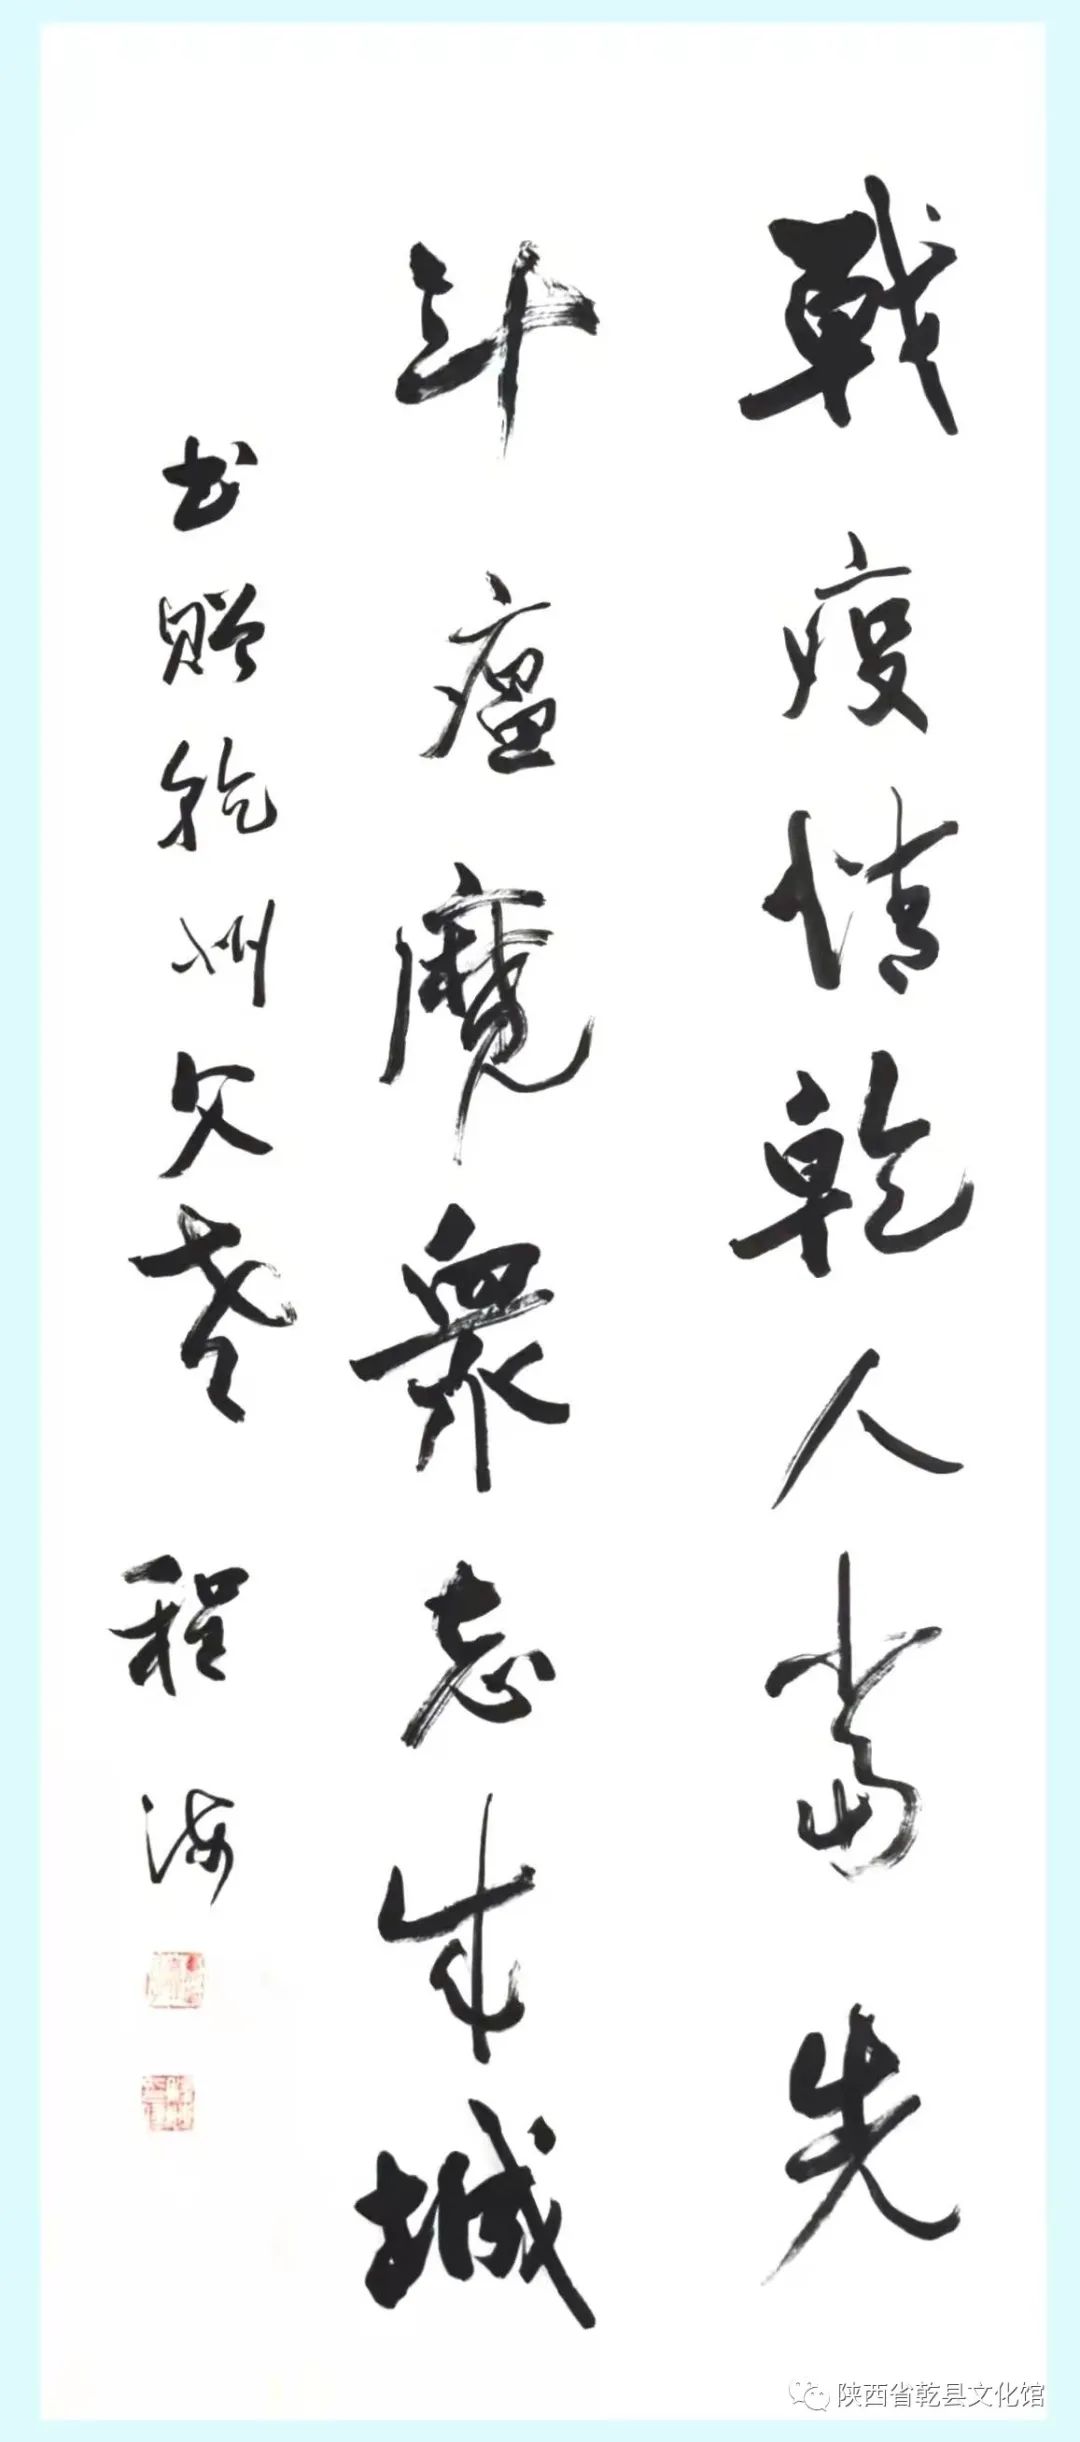 戰疫情乾人當先
斗瘟魔衆志成城
书赠乾州父老 程海
陕西省乾县文化馆